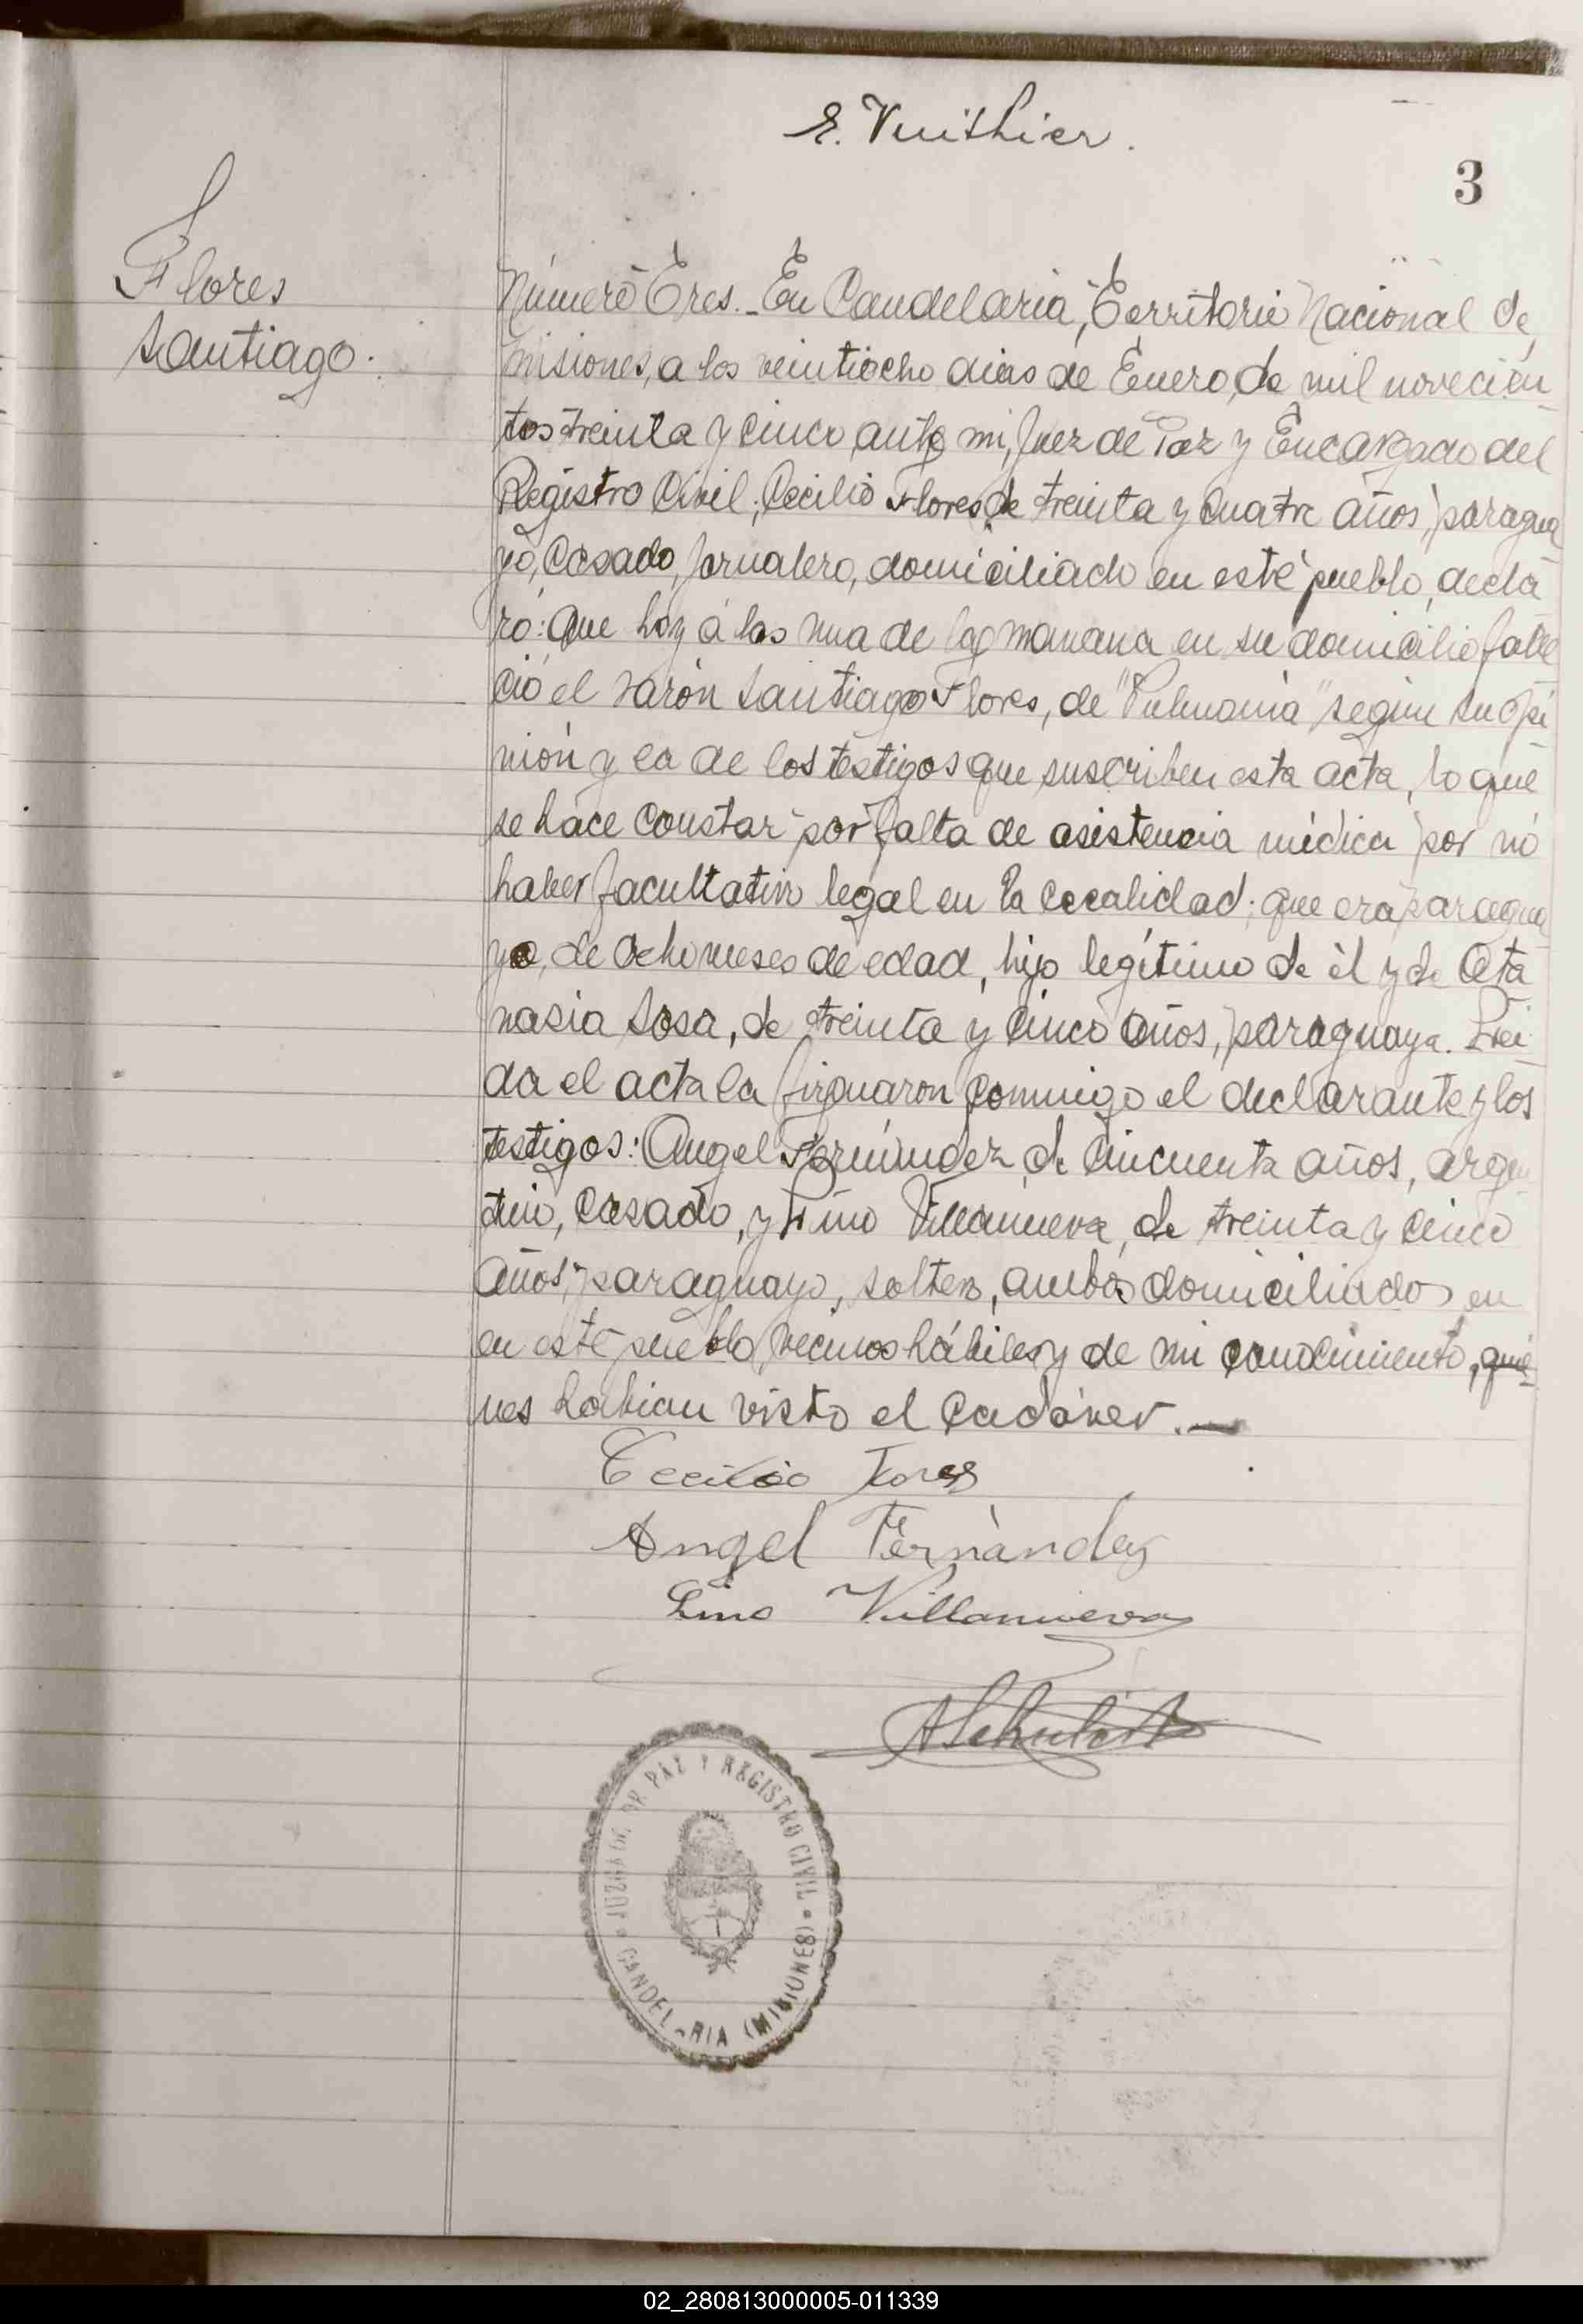 E. Vuithier.
3
Flores
Santiago.
Número Tres.- En Candelaria, Territorio Nacional de
Misiones, a los veintiocho dias de Enero, de mil novecien-
tos treinta y cinco, ante mi, Juez de Paz y Encargado del
Registro Civil; Cecilio Flores, de treinta y cuatro años, paragua
yo, casado, jornalero, domiciliado en este pueblo, decla
ró: Que hoy á las una de la mañana en su domicilio falle
ció el varón Santiago Flores, de "Pulmonia" según su opi
nión y la de los testigos que suscriben esta acta, lo que
se hace constar por falta de asistencia médica por no
haber facultativo legal en la localidad; que era paragua
yo, de ocho meses de edad, hijo legítimo de él y de Ata
nasia Sosa, de treinta y cinco años, paraguaya. Leí-
da el acta la firmaron conmigo el declarante y los
testigos: Angel Fernández, de cincuenta años, argen
tino, casado, y Lino Villanueva, de treinta y cinco
años, paraguayo, soltero, ambos domiciliados en
en este pueblo, vecinos hábiles y de mi conocimiento, quie-
nes habian visto el cadáver.—
Cecilio Flores
Angel Fernàndez
Lino Villanueva
JUZGADO DE PAZ Y REGISTRO CIVIL
CANDELARIA (MISIONES)
02_280813000005-011339